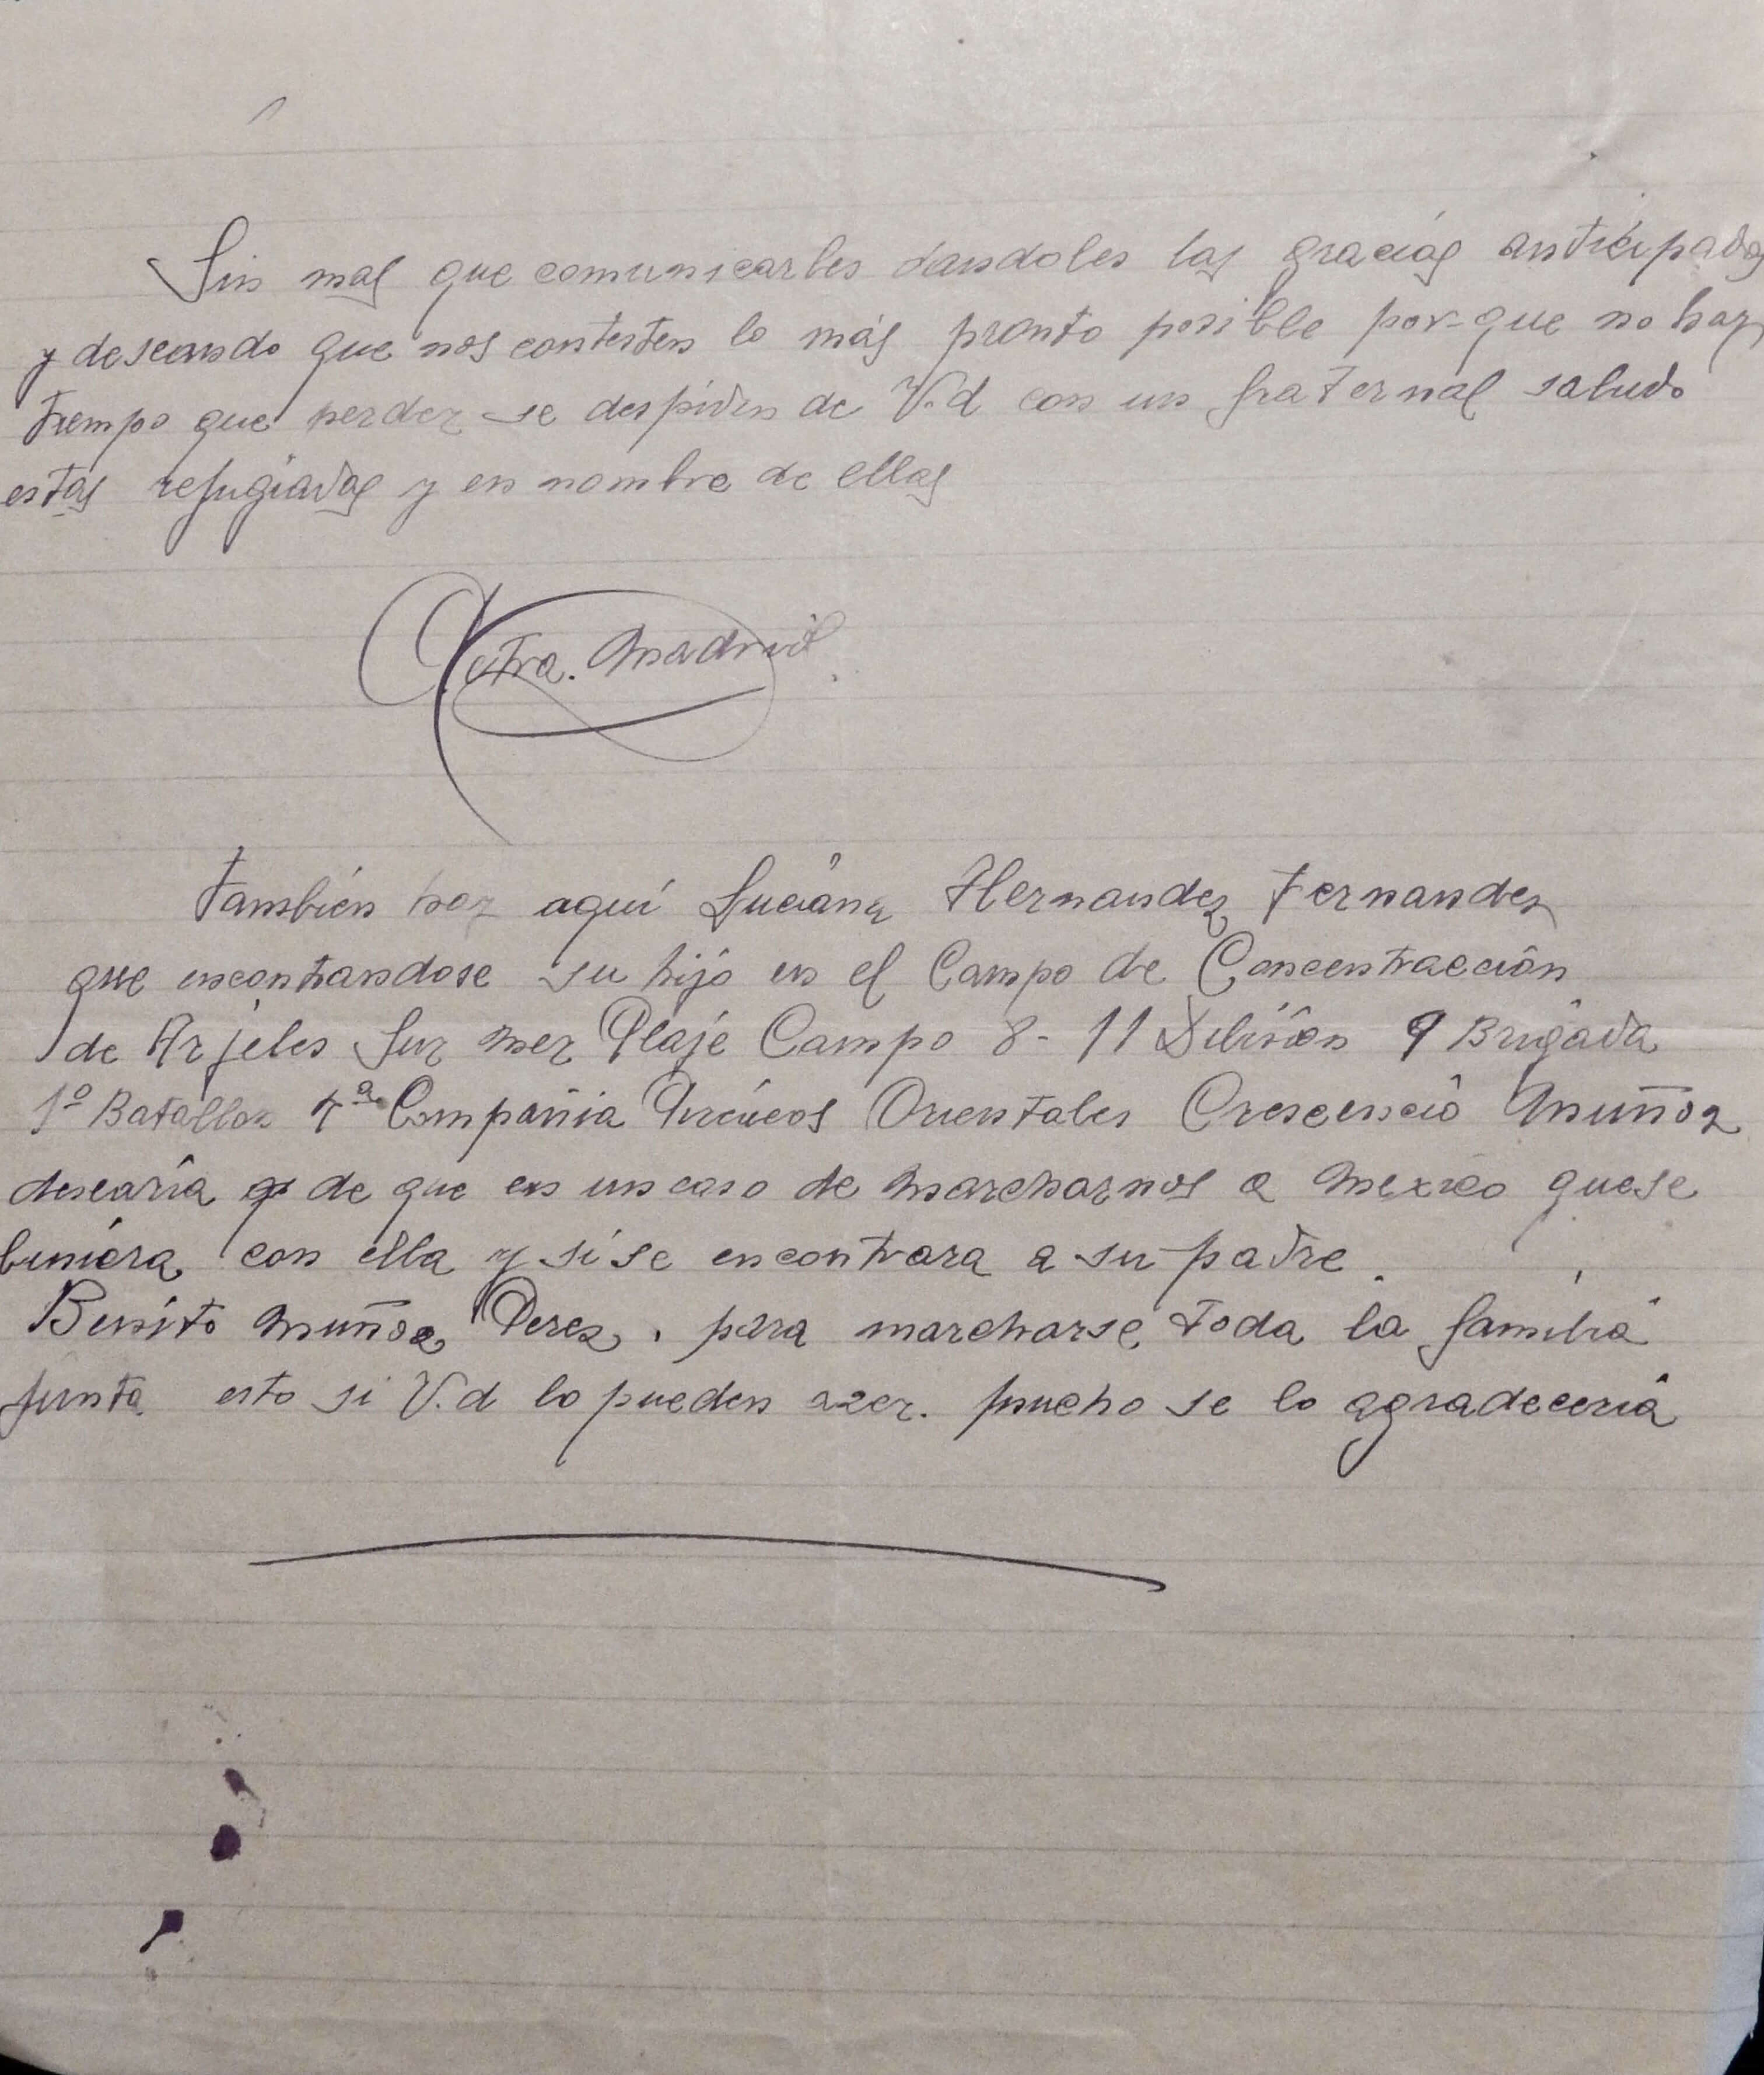 Sin mas que comunicarles dandoles las gracias anticipadas
y deseando que nos contesten lo más pronto posible por-que no hay
tiempo que perder se despiden de V.d con un fraternal saludo
estas refugiadas y en nombre de ellas
Madrid
También hay aquí Luciana Hernandez Fernandez
que encontrandose su hijo en el Campo de Concentracción
de Arjeles Sur mer Plaje Campo 8 - 11 Dibision 9 Brigada
1º Batallon 4ª Compañia Pirineos Orientales Crescencio Muñoz
desearia de que en un caso de marcharnos a Mexico que se
biniera con ella y si se encontrara a su padre.
Benito Muñoz Perez, para marcharse toda la familia
junta esto si V.d lo pueden azer. mucho se lo agradeceria